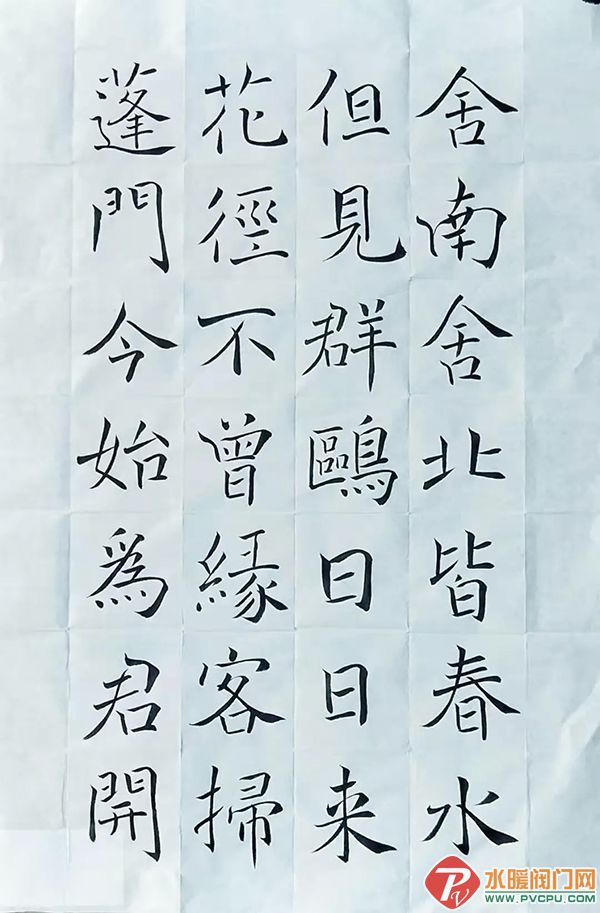 舍南舍北皆春水
但見群鷗日日来
花徑不曾緣客掃
蓬門今始為君開
水暖阀门网
WWW.PVCPU.COM